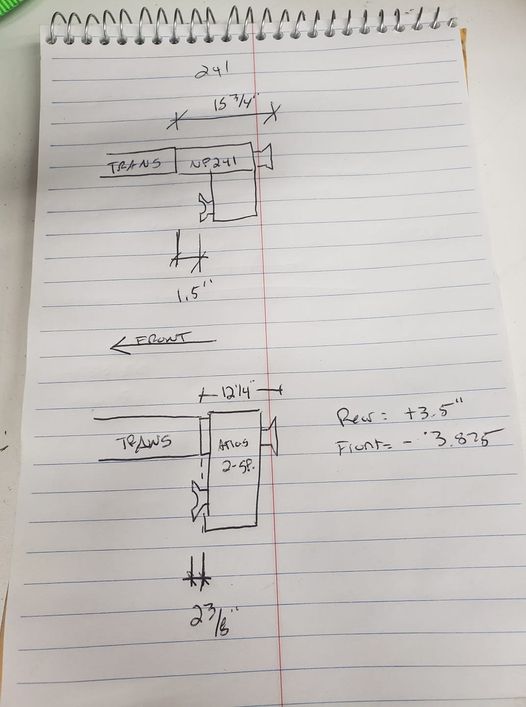 241
15 3/4"
TRANS NP241
1.5"
FRONT
12 1/4"
TRANS Atlas
2-SP.
Rear: +3.5"
Front= - 3.875
2 3/8"